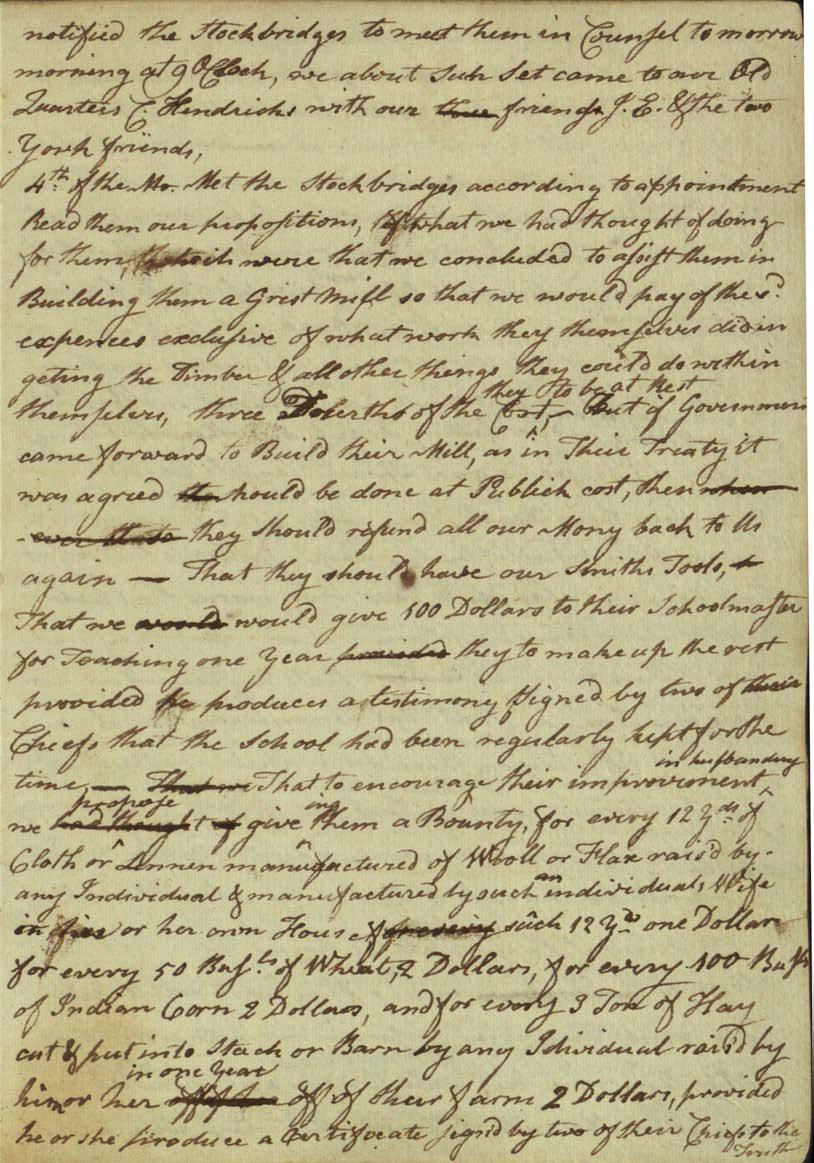 notified the Stockbridges to meet them in Counsel to morrow
morning at 9 OClock, we about Sun Set came to our Old
Quarters C Hendricks with our friends J. E. & the two
York friends,
4th of the Mo. Met the Stockbridges according to appointment
Read them our propositions, of what we had thought of doing
for them, which were that we concluded to assist them in
Building them a Grist Mill so that we would pay of the sd.
expences exclusive of what work they themselves did in
geting the Timber & all other things they could do within
they to be at Rest
themselves, three of the Cost, But if Government
came forward to Build their Mill, as in Their Treaty it
was agried should be done at Publick cost, then
they should refund all our Mony back to Us
again — That they should have our Smiths Tools,
That we would would give 100 Dollars to their Schoolmaster
for Teaching one Year provided they to make up the rest
provided he produces a testimony Signed by two of their
Chiefs that the School had been regularly kept for the
in husbandry
time, — That we That to encourage their improvement
propose ing
we had thought of give them a Bounty, for every 12 Yds of
Cloth or Linnen manufactured of Wooll or Flax rais'd by
any Individual & manufactured by such an individuals Wife
or her own House for every such 12 Yds one Dollar
for every 50 Bushls of Wheat, 2 Dollars, for every 100 Bushls
of Indian Corn 2 Dollars, and for every 3 Ton of Hay
cut & put into Stack or Barn by any Idividual rais'd by
in one Year
him or her off of their farm 2 Dollars, provided
he or she produce a Certificate sign'd by two of their Chiefs to the
Truth